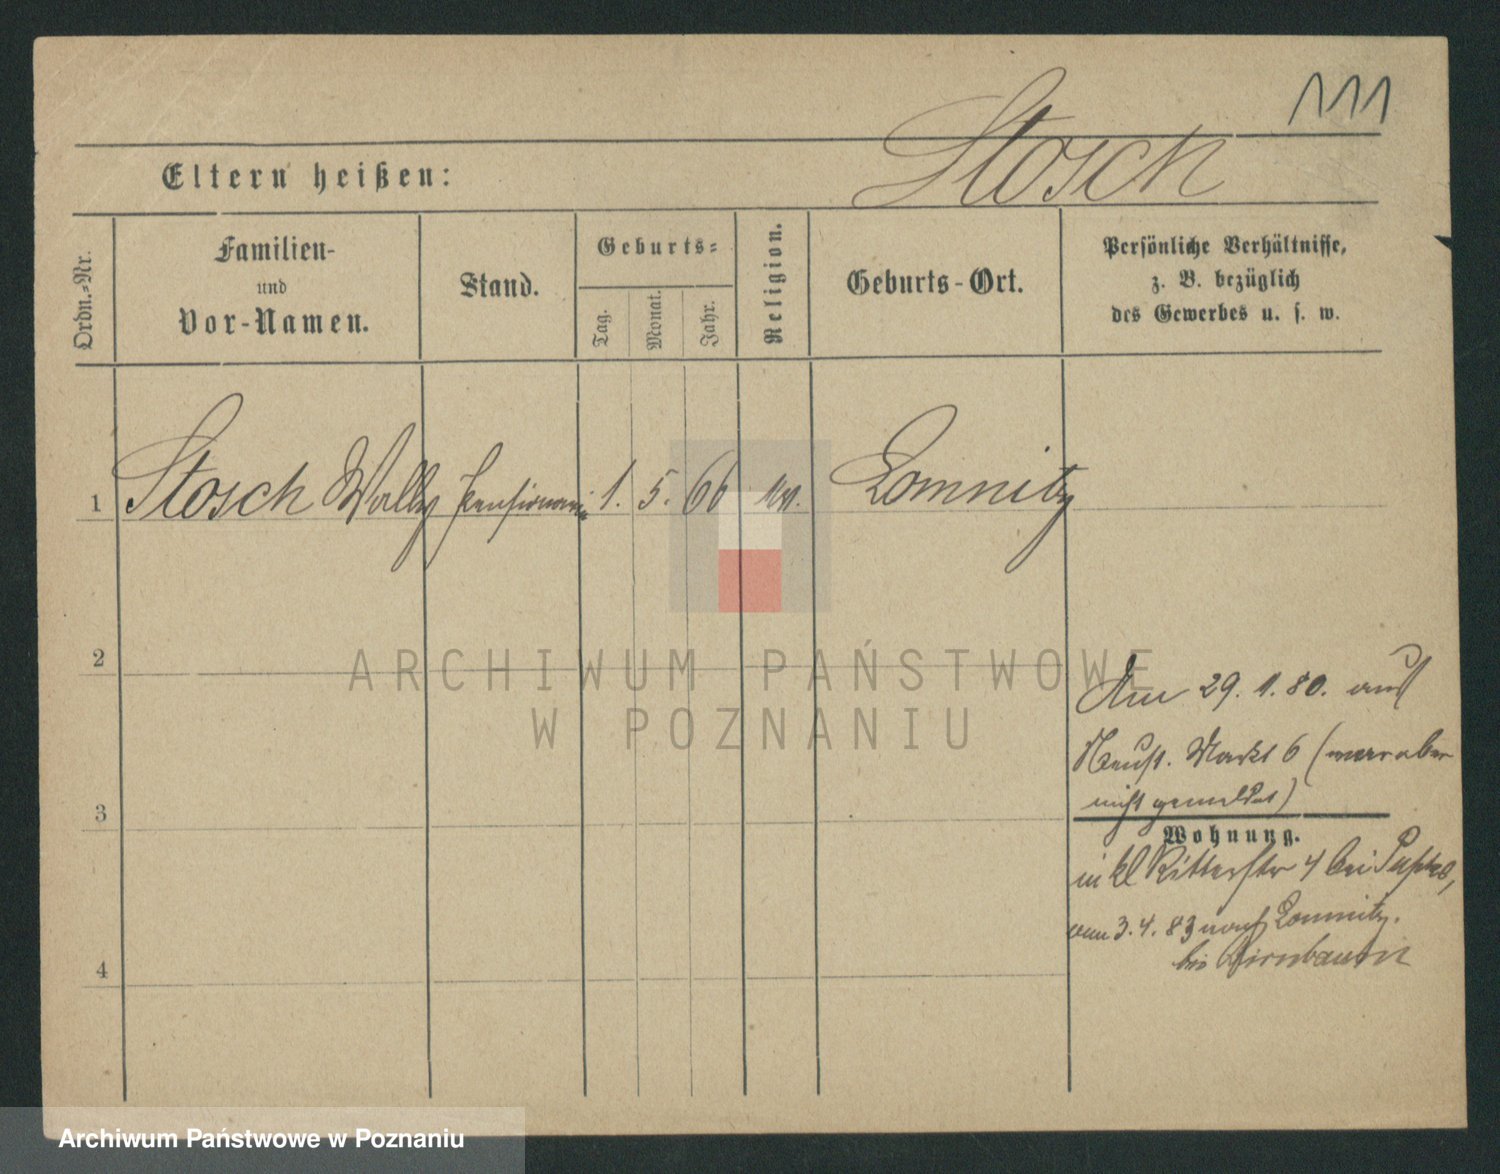 111
Stosch
Eltern heißen:
Ordn.-Nr.
Familien-
und
Vor-Namen.
Stand.
Geburts-
Tag.
Monat.
Jahr.
Religion.
Geburts-Ort.
Persönliche Verhältnisse,
z. B. bezüglich
des Gewerbes u. s. w.
1 Stosch Wally 1. 5. 66 Lomnitz
2
ARCHIWUM PAŃSTWOWE
W POZNANIU
Am 29. 1. 80. aus
Neust. Markt 6 (war aber
3
nicht gemeldet)
Wohnung.
in kl Ritterstr 4 bei
am 3. 4. 83 nach Lomnitz.
4
bei Birnbaum
Archiwum Państwowe w Poznaniu